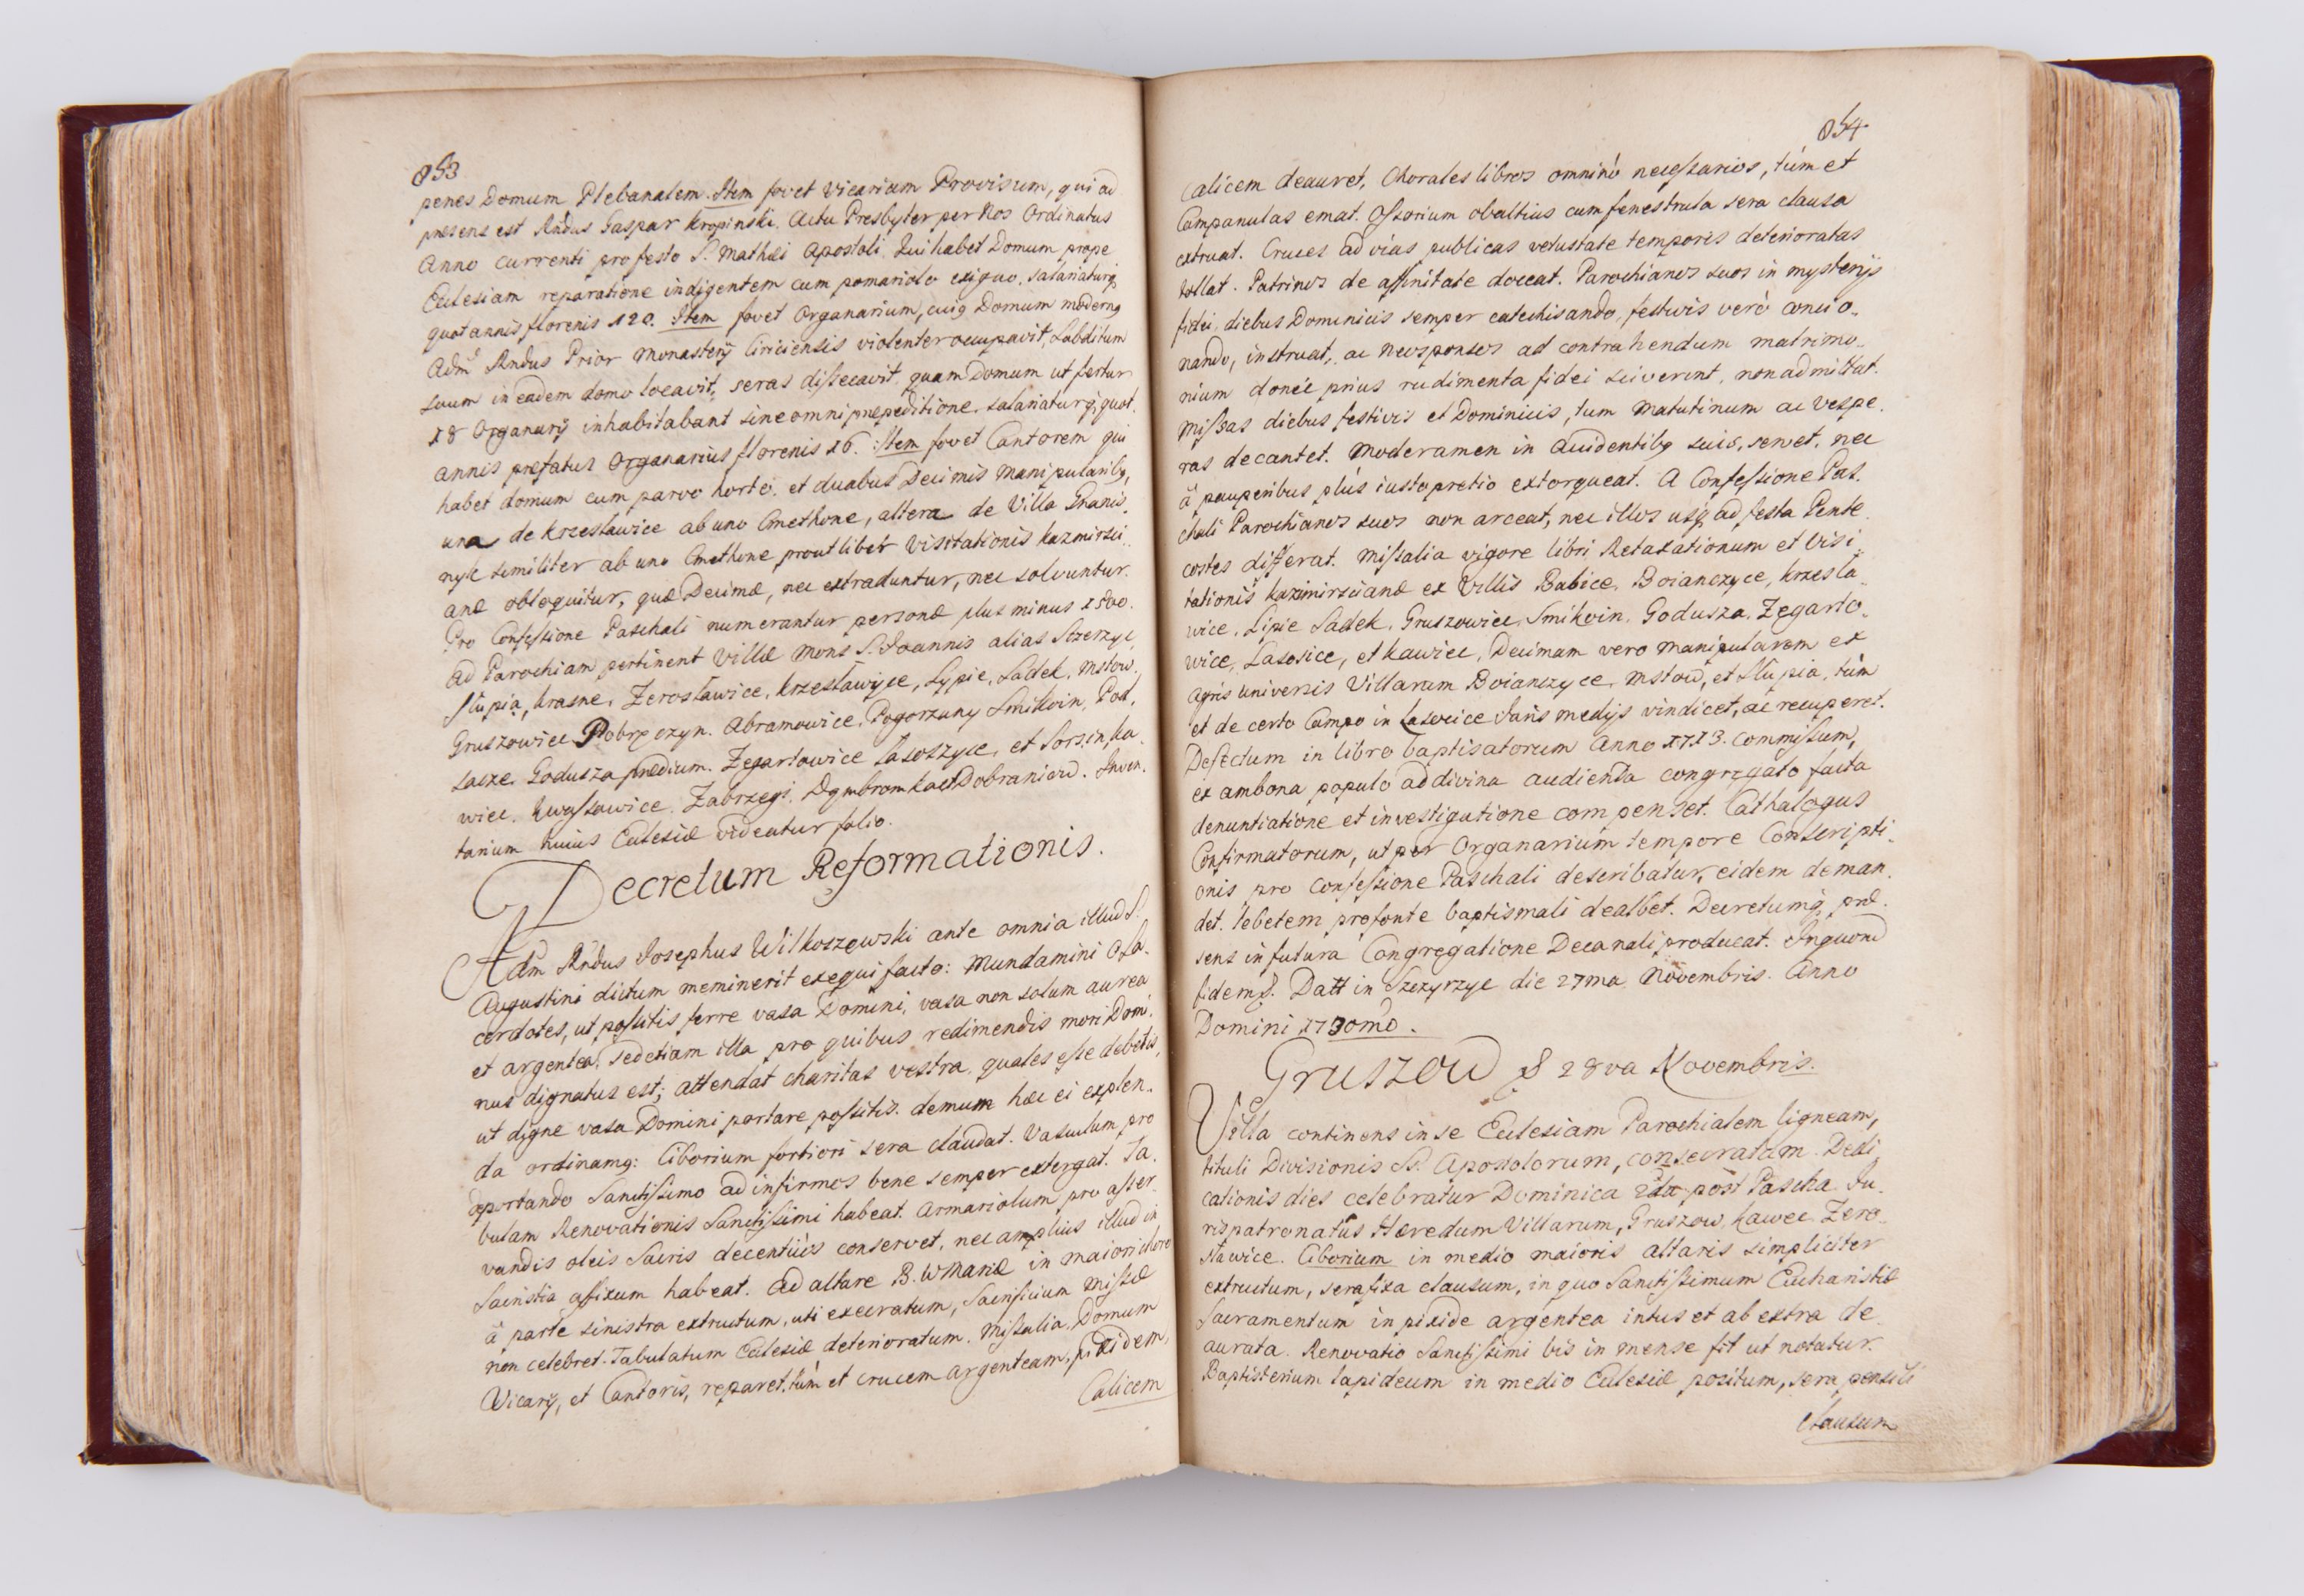 853
penes Domum Plebanalem. Item fovet Vicarium Provisum, qui ad
presens est Rñdus Gaspar Kropinski, Actu Presbyter per Nos Ordinatus
Anno currenti pro festo S. Mathæi Apostoli. Qui habet Domum prope
Eccle​siam reparatione indigentem cum pomariolo exiguo, salariaturq;
quotannis florenis 120. Item fovet Organarium, cuiq Domum moderng
Adm̃ Rñdus Prior Monasterÿ Ciriciensis violenter occupavit, Subditum
suum in eadem domo locavit, seras dissecavit, quam Domum ut fertur
18 Organarÿ inhabitabant sine omni præpeditione, salariaturq; quot
annis præfatus Organarius florenis 16. Item fovet Cantorem qui
habet domum cum parvo horto, et duabus Decimis Manipularibq,
una de Krzesławice ab uno Cmethone, altera de Villa Granis
nyk similiter ab uno Cmethone prout liber Visitationis kazmirsci
anæ obloquitur, quæ Decimæ, nec extraduntur, nec solvuntur.
Pro Confessione Paschali numerantur personæ plus minus 1500.
Ad Parochiam pertinent Villæ Mons S. Joannis alias Szczyrzyc,
Słupia, krasne, Zerosławice, krzesławice, Lypie, Sadek, Mstow.
Gruszowiec Dobręczyn. Abramowice, Pogorzany Smikoin, Pod,
lasze. Godusza prædium. Zegartowice Lasoszyce, et Sorsin, ka
wiec. kwassowice. Zabrzegi. Dąmbrowka et Dobraniow. Inven,
tarium huius Ecclesiæ videatur folio.
Decretum Reformationis.
Adm̃ Rñdus Josephus Wilkoszewski ante omnia illud S.
Augustini dictum meminerit exequi facto: Mundamini O Sa,
cerdotes, ut possitis ferre vasa Domini, vasa non solum aurea
et argentea, sed etiam illa pro quibus redimendis mori Domi,
nus dignatus est; attendat charitas vestra, quales esse debetis,
ut digne vasa Domini portare possitis. demum hæc ei explen,
da ordinamq: Ciborium fortiori sera claudat. Vasculum pro
deportando Sanctissimo ad infirmos bene semper extergat. Ta,
bulam Renovationis Sanctissimi habeat. Armariolum pro asser
vandis oleis Sacris decentiùs conservet, nec amplius illud in
Sacristia affixum habeat. Ad altare B. V. Mariæ in maiori choro
à parte sinistra extructum, uti execratum, Sacrificium Missæ
non celebret. Tabulatum Ecclesiæ deterioratum. Missalia, Domum
Vicarÿ, et Cantoris, reparet, tùm et crucem argenteam, pixidem,
Calicem
854
Calicem deauret, Chorales libros omninò necessarios, tùm et
Campanulas emat. Ossorium obaltius cum fenestrula sera clausa
extruat. Cruces ad vias publicas vetustate temporis deterioratas
tollat. Patrinos de affinitate doceat. Parochianos suos in mysterÿs
fidei, diebus Dominicis semper catechisando, festivis verò concio,,
nando, instruat, ac Neosponsos ad contrahendum matrimo,,
nium donec prius rudimenta fidei sciverint, non admittat.
Missas diebus festivis et Dominicis, tum Matutinum ac Vespe,
ras decantet. Moderamen in Accidentibq suis, servet, nec
à pauperibus plùs iusto pretio extorqueat. A Confessione Pas,
chali Parochianos suos non arceat, nec illos usq; ad festa Pente
costes differat. Missalia vigore libri Retaxationum et Visi,,
tationis kazimirscianæ ex Villis Babice, Boianczyce, krzesła,,
wice, Lipie Sadek, Gruszowiec, Smikoin, Godusza, Zegarto,,
wice, Lasosice, et kawiec, Decimam vero manipularem ex
agris universis Villarum Boianczyce, Mstow, et Słupia, tùm
et de certo Campo in Lasocice Juris medÿs vindicet, ac recuperet.
Defectum in libro baptisatorum Anno 1713. commissum,
ex ambona populo ad divina audienda congregato facta
denuntiatione et investigatione compenset. Cathalogus
Confirmatorum, ut per Organarium tempore Conscripti,
onis pro confessione Paschali describatur, eidem deman,
det. lebetem pro fonte baptismali dealbet. Decretumq; præ,
sens in futura Congregatione Decanali producat. In quorum
fidem &. Datt in Szczyrzyc die 27ma Novembris. Anno
Domini 1730mo.
Gruszow & 28va Novembris.
Villa continens in se Ecclesiam Parochialem ligneam,
tituli Divisionis SS. Apostolorum, consecratam. Dedi,
cationis dies celebratur Dominica 2da post Pascha. Ju,
ris patronatûs Hæredum Villarum, Gruszow, kawec Zero,,
sławice. Ciborium in medio maioris altaris simpliciter
extructum, sera fixa clausum, in quo Sanctissimum Eucharistiæ
Sacramentum in pixide argentea intus et ab extra de
aurata. Renovatio Sanctissimi bis in mense fit ut notatur.
Baptisterium lapideum in medio Ecclesiæ positum, sera pensili
clausum